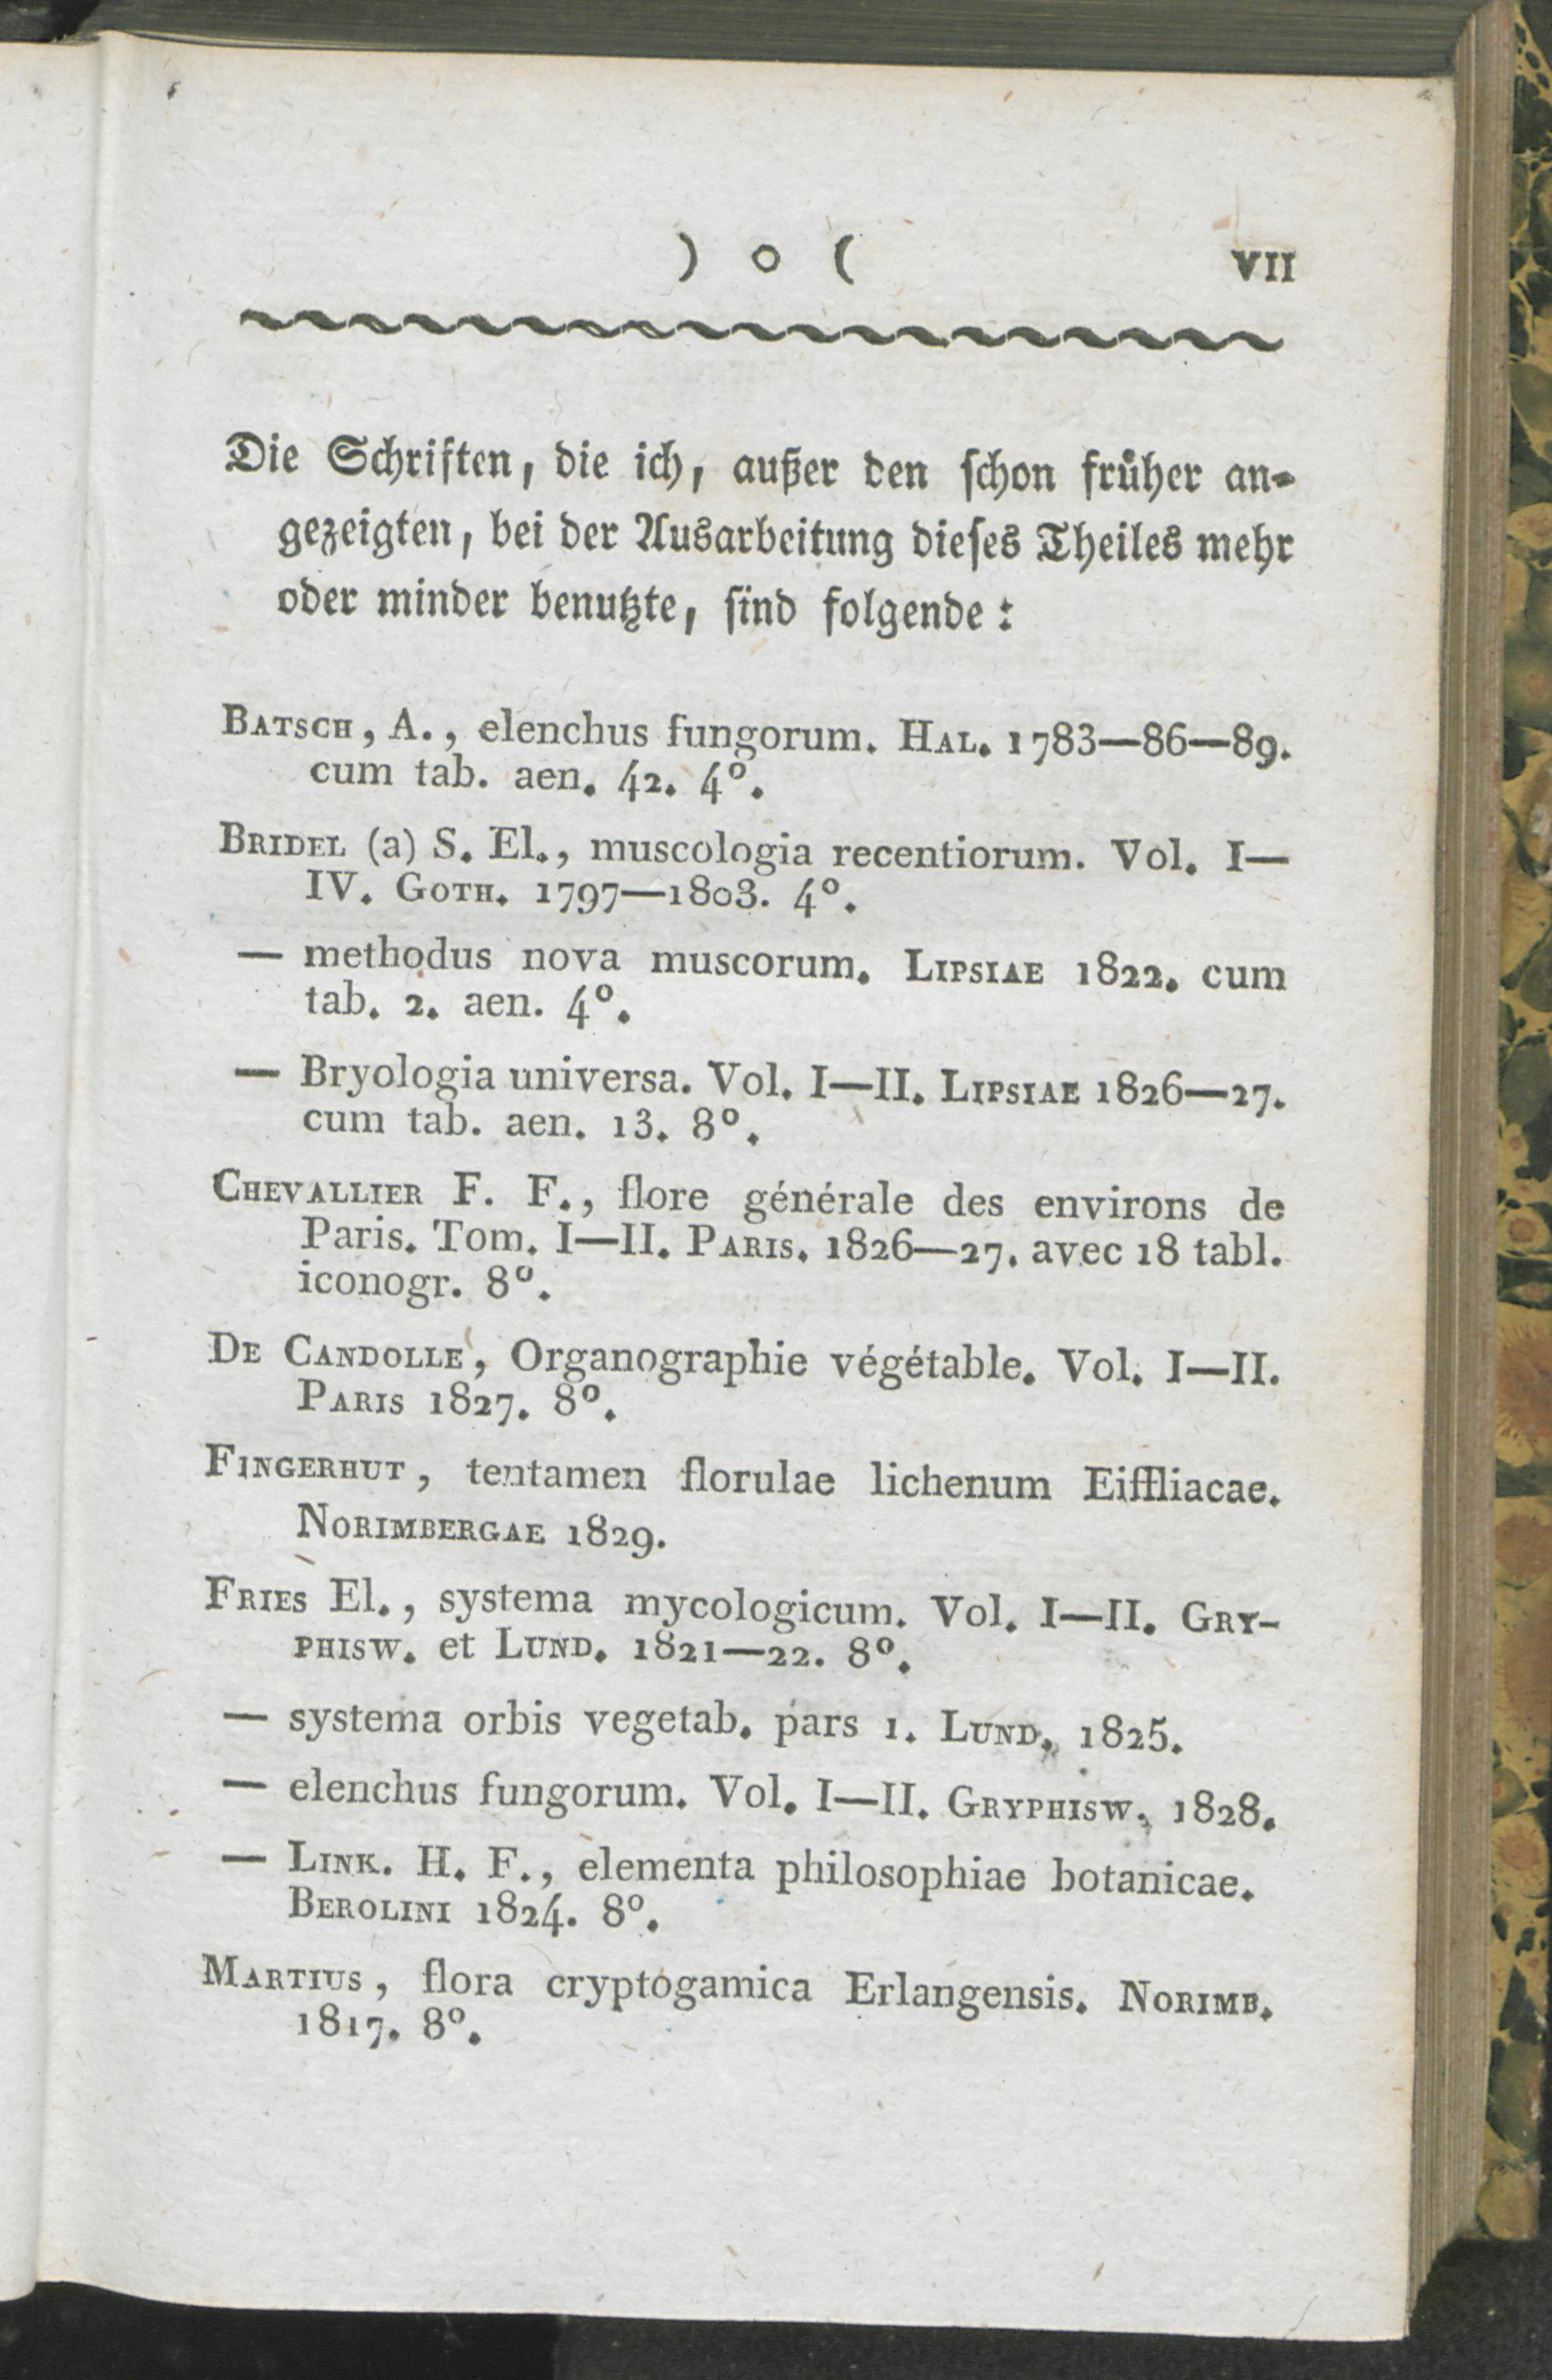 ) o ( VII
Die Schriften, die ich, außer den schon früher an-
gezeigten, bei der Ausarbeitung dieses Theiles mehr
oder minder benutzte, sind folgende:
BATSCH, A., elenchus fungorum. HAL. 1783—86—89.
cum tab. aen. 42. 4º.
BRIDEL (a) S. El., muscologia recentiorum. Vol. I—
IV. GOTH. 1797—1803. 4º.
— methodus nova muscorum. LIPSIAE 1822. cum
tab. 2. aen. 4º.
— Bryologia universa. Vol. I—II. LIPSIAE 1826—27.
cum tab. aen. 13. 8º.
CHEVALLIER F. F., flore générale des environs de
Paris. Tom. I—II. PARIS. 1826—27. avec 18 tabl.
iconogr. 8º.
DE CANDOLLE, Organographie végétable. Vol. I—II.
PARIS 1827. 8º.
FINGERHUT, tentamen florulae lichenum Eiffliacae.
NORIMBERGAE 1829.
FRIES El., systema mycologicum. Vol. I—II. GRY-
PHISW. et LUND. 1821—22. 8º.
— systema orbis vegetab. pars 1. LUND. 1825.
— elenchus fungorum. Vol. I—II. GRYPHISW. 1828.
— LINK. H. F., elementa philosophiae botanicae.
BEROLINI 1824. 8º.
MARTIUS, flora cryptogamica Erlangensis. NORIMB.
1817. 8º.